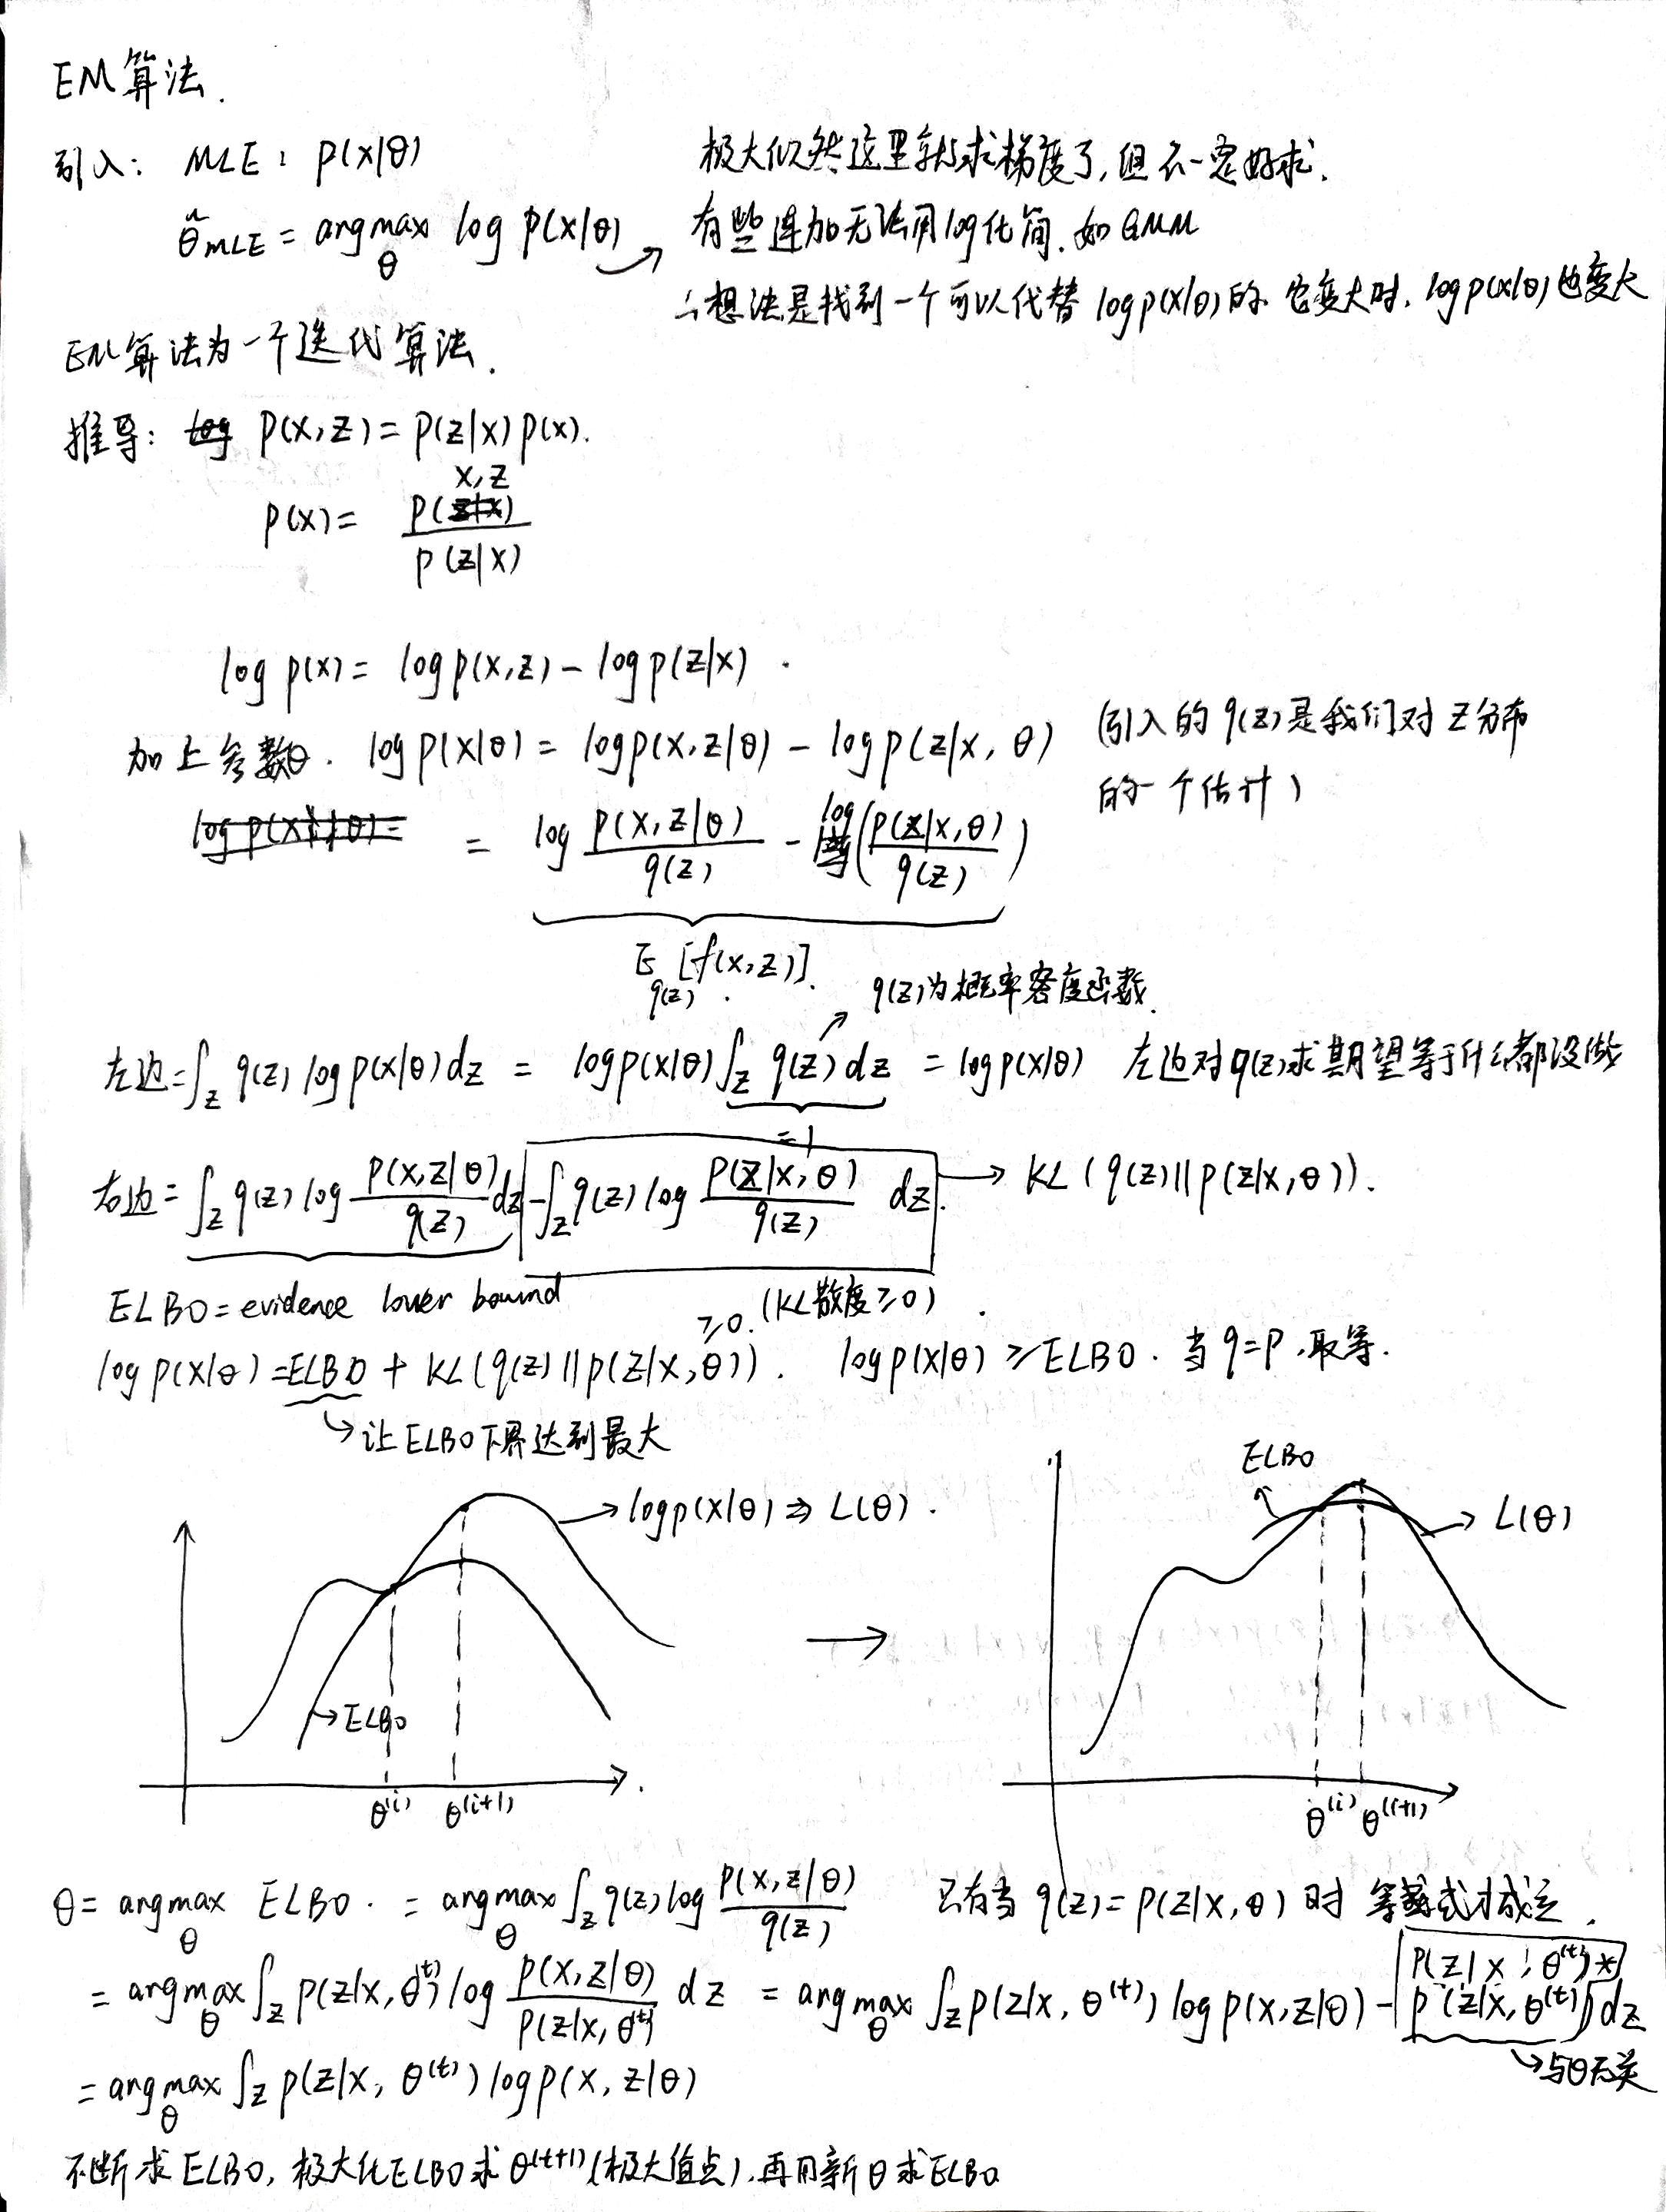 EM算法.
引入: MLE: P(x|θ)
极大似然这里就求梯度了,但不一定好求.
θ̂MLE = argmax_θ log P(x|θ)
有些连加无法用log化简.如GMM
∴想法是找到一个可以代替 log p(x|θ)的 它变大时. log p(x|θ)也变大
EM算法为一个迭代算法.
推导: P(x,z) = P(z|x)p(x).
P(x) = P(x,z) / P(z|x)
log p(x) = log p(x,z) - log p(z|x).
加上参数θ. log p(x|θ) = log p(x,z|θ) - log p(z|x,θ) (引入的 q(z)是我们对 z分布
的一个估计)
= log P(x,z|θ)/q(z) - log(P(z|x,θ)/q(z))
E_q(z) [f(x,z)].
q(z)为概率密度函数.
左边=∫_z q(z) log p(x|θ)dz = log p(x|θ)∫_z q(z)dz = log p(x|θ) 左边对q(z)求期望等于什么都没做
=1
右边=∫_z q(z) log P(x,z|θ)/q(z) dz -∫_z q(z) log P(z|x,θ)/q(z) dz. → KL(q(z)||p(z|x,θ)).
ELBO=evidence lower bound
≥0.(KL散度≥0).
log p(x|θ)=ELBO + KL(q(z)||p(z|x,θ)). log p(x|θ) ≥ ELBO. 当 q=P.取等.
↳让ELBO下界达到最大
→log p(x|θ) ⇒ L(θ).
→ELBO
θ^(i) θ^(i+1)
→
ELBO
→ L(θ)
θ^(i) θ^(i+1)
θ= argmax_θ ELBO. = argmax_θ ∫_z q(z)log P(x,z|θ)/q(z) 只有当 q(z)=P(z|x,θ) 时 等式才成立.
= argmax_θ ∫_z P(z|x,θ^(t)) log P(x,z|θ)/P(z|x,θ^(t)) dz = argmax_θ ∫_z p(z|x,θ^(t)) log p(x,z|θ) - P(z|x,θ^(t))* p(z|x,θ^(t)) dz
↳与θ无关
= argmax_θ ∫_z p(z|x,θ^(t)) log p(x,z|θ)
不断求ELBO, 极大化ELBO求θ^(t+1)(极大值点),再用新θ求ELBO